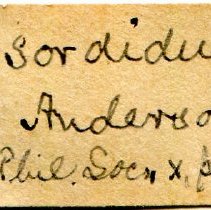 sordidu
Anderso
Phil. Soc., x, p